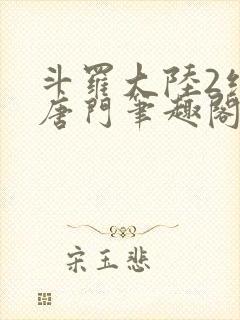 斗羅大陸2
唐門筆趣閣
宋玉悲